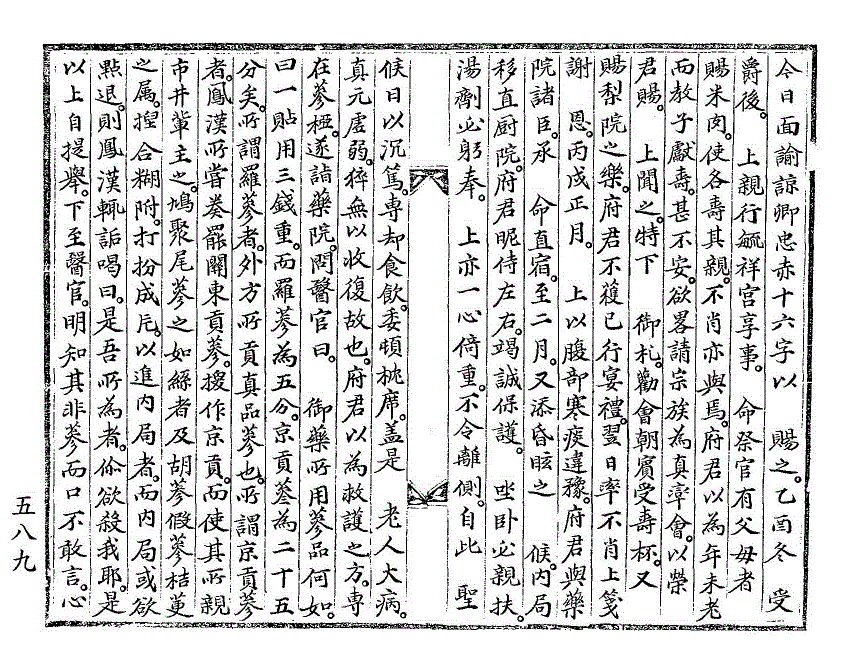 今日面諭諒卿忠赤十六字以　賜之。乙酉冬　受
爵後。　上親行毓祥宮享事。　命祭官有父母者
賜米肉。使各壽其親。不肖亦與焉。府君以為年未老
而教子獻壽。甚不安。欲畧請宗族為真率會。以榮
君賜。　上聞之。特下　御札。勸會朝賓受壽杯。又
賜梨院之樂。府君不獲已行宴禮。翌日率不肖上箋
謝　恩。丙戌正月。　上以腹部寒痰違豫。府君與藥
院諸臣。承　命直宿。至二月。又添昏眩之　候。內局
移直厨院。府君昵侍左右。竭誠保護。　坐卧必親扶。
湯劑必躬奉。　上亦一心倚重。不令離側。自此　聖
候日以沉篤。專却食飮。委頓枕席。盖是　老人大病。
真元虛弱。猝無以收復故也。府君以為救護之方。專
在蔘極。遂詣藥院。問醫官曰。　御藥所用蔘品何如。
曰一貼用三錢重。而羅蔘為五分。京貢蔘為二十五
分矣。所謂羅蔘者。外方所貢真品蔘也。所謂京貢蔘
者。鳳漢所嘗奏罷關東貢蔘。換作京貢。而使其所親
市井輩主之。鳩聚尾蔘之如絲者及胡蔘假蔘桔莄
之属。揑合糊附。打扮成片。以進內局者。而內局或欲
㸃退。則鳳漢輒詬喝曰。是吾所為者。你欲殺我耶。是
以上自提擧。下至醫官。明知其非蔘而口不敢言。心
五八九